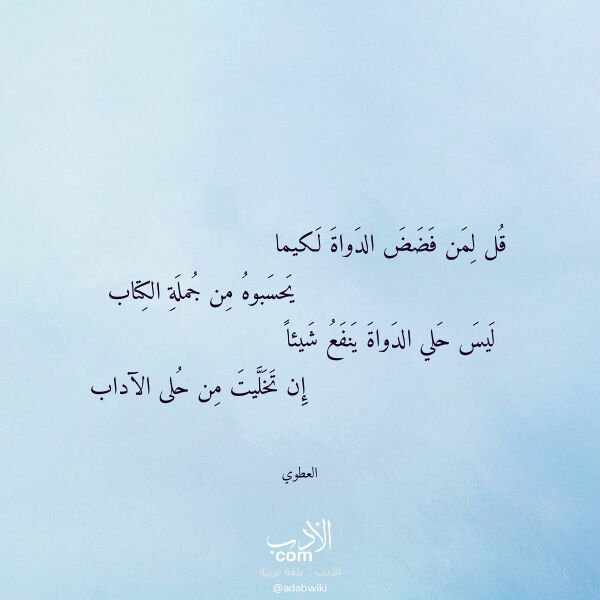 قُل لِمَن فَضَضَ الدَواةَ لَكيما
يَحسَبوهُ مِن جُملَةِ الكِتاب
لَيسَ حَلي الدَواةَ يَنفَعُ شَيئاً
إِن تَخَلَّيتَ مِن حُلى الآداب
العطوي
الأدب
com
الأدب .. بلغة عربية
@adabwiki